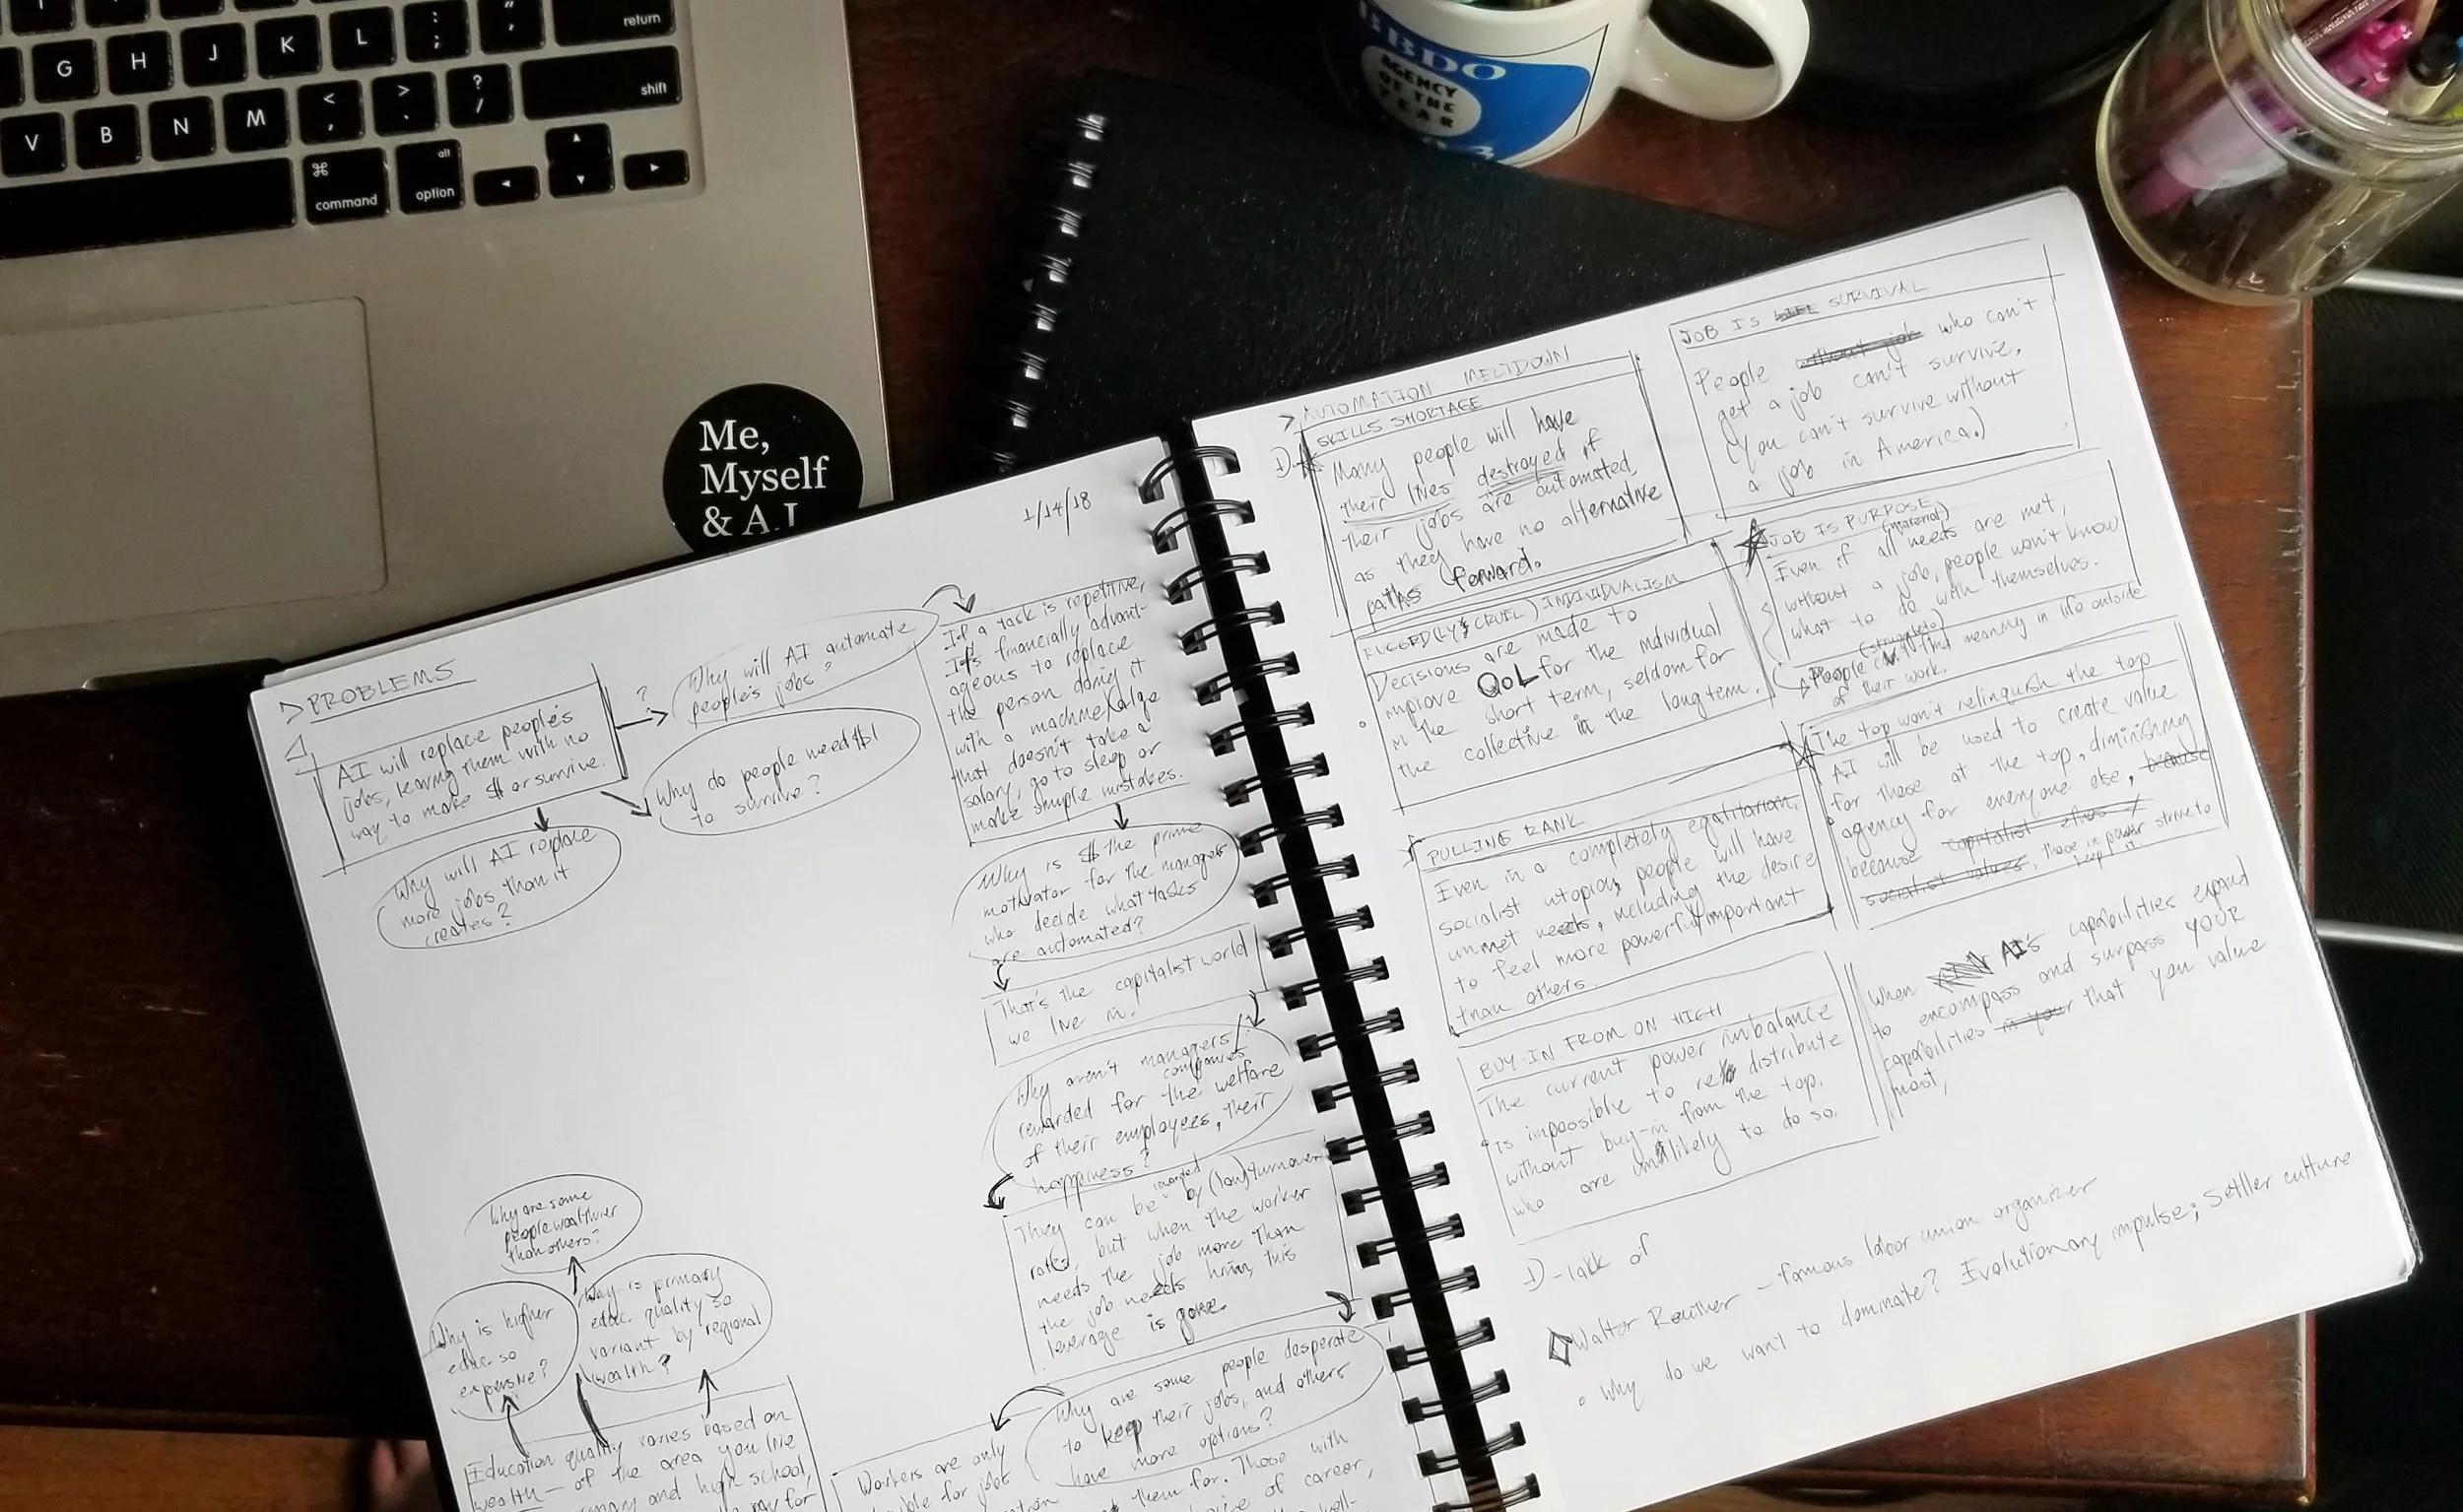 return
G
H
J
K
L
:
;
"
,
shift
V
B
N
M
<
,
>
.
?
/
⌘
command
alt
option
BBDO
AGENCY
OF THE
YEAR
Me,
Myself
& A.I
1/14/18
> PROBLEMS
AI will replace people's
jobs, leaving them with no
way to make $ or survive.
?
Why will AI automate
people's jobs?
Why do people need $
to survive?
Why will AI replace
more jobs than it
creates?
If a task is repetitive,
It's financially advant-
ageous to replace
the person doing it
with a machine/algo
that doesn't take a
salary, go to sleep or
make simple mistakes.
Why is $ the prime
motivator for the managers
who decide what tasks
are automated?
That's the capitalist world
we live in.
Why aren't managers/
companies
rewarded for the welfare
of their employees, their
happiness?
They can be rewarded by (low) turnover
rates, but when the worker
needs the job more than
the job needs him, this
leverage is gone.
Why are some people desperate
to keep their jobs, and others
have more options?
Workers are only
for jobs
them for. Those with
of career,
Why are some
people wealthier
than others?
Why is higher
educ. so
expensive?
Why is primary
educ. quality so
variant by regional
wealth?
Education quality varies based on
wealth - of the area you live
and high school,
for
> AUTOMATION MELTDOWN
1)
SKILLS SHORTAGE
Many people will have
their lives destroyed if
their jobs are automated,
as they have no alternative
paths forward.
RUGGED(LY CRUEL) INDIVIDUALISM
Decisions are made to
improve QoL for the individual
in the short term, seldom for
the collective in the long term.
PULLING RANK
Even in a completely egalitarian,
socialist utopia, people will have
unmet needs, including the desire
to feel more powerful/important
than others.
BUY-IN FROM ON HIGH
The current power imbalance
is impossible to redistribute
without buy-in from the top,
who are unlikely to do so.
JOB IS LIFE SURVIVAL
People without job who can't
get a job can't survive.
(You can't survive without
a job in America.)
JOB IS PURPOSE
Even if all (material) needs are met,
without a job, people won't know
what to do with themselves.
People (struggle to) find meaning in life outside
of their work.
The top won't relinquish the top
AI will be used to create value
for those at the top, diminishing
agency for everyone else, because
because capitalist ethos /
socialist values, those in power strive to
keep it.
When AI's capabilities expand
to encompass and surpass YOUR
capabilities in your that you value
most,
1) - lack of
Walter Reuther - famous labor union organizer
• Why do we want to dominate? Evolutionary impulse; settler culture